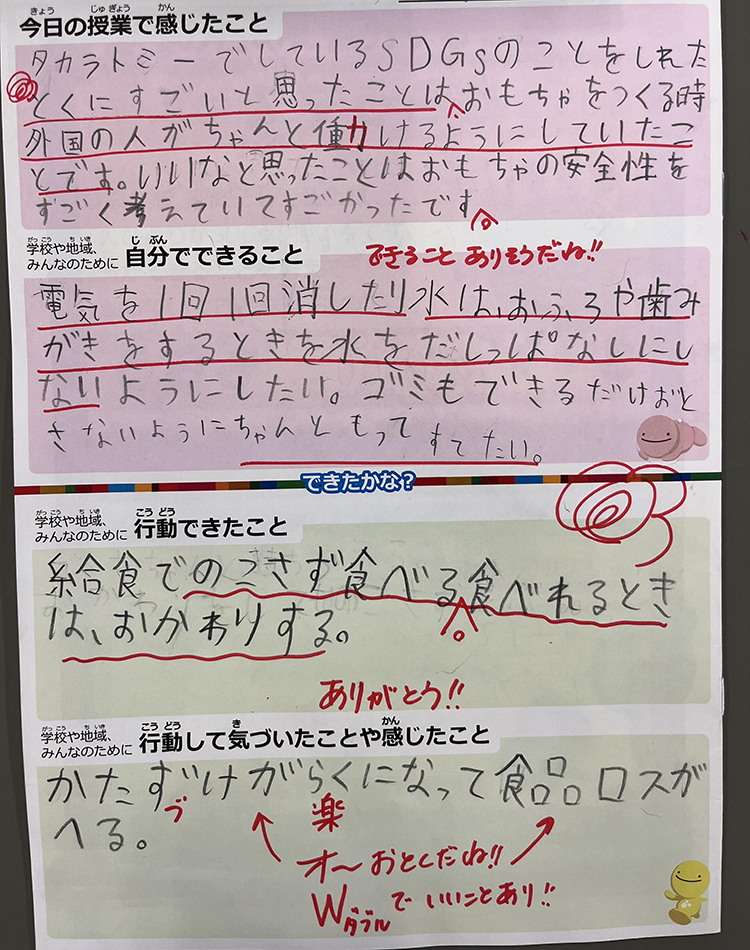 今日の授業で感じたこと
きょう じゅぎょう かん
タカラトミーでしているSDGsのことをしれた
とくにすごいと思ったことは、おもちゃをつくる時
外国の人がちゃんと働けるようにしていたこ
とです。いいなと思ったことはおもちゃの安全性を
すごく考えていてすごかったです。
学校や地域、みんなのために 自分でできること
がっこう ちいき じぶん
できること ありそうだね!!
電気を1回1回消したり水は、おふろや歯み
がきをするときを水をだしっぱなしにし
ないようにしたい。ゴミもできるだけおと
さないようにちゃんともってすてたい。
できたかな?
学校や地域、みんなのために 行動できたこと
がっこう ちいき こうどう
給食でのこさず食べる。食べれるとき
は、おかわりする。
ありがとう!!
学校や地域、みんなのために 行動して気づいたことや感じたこと
がっこう ちいき こうどう き かん
かたずけがらくになって食品ロスが
づ
楽
へる。
オ〜おとくだね!!
Wダブルでいいことあり!!